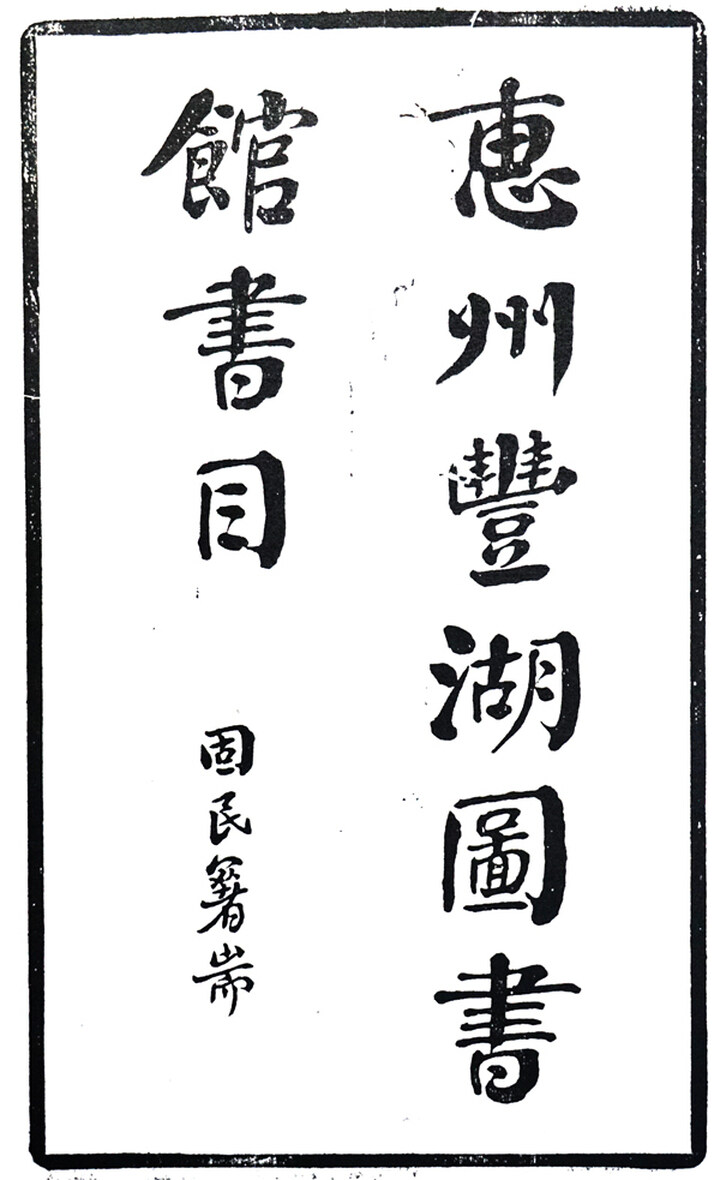 惠州豐湖圖書
館書目
固民署耑